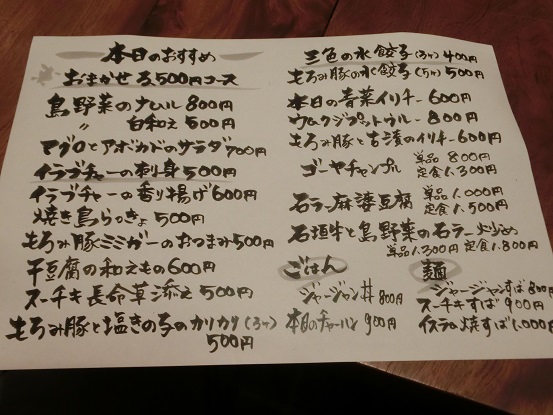 本日のおすすめ
おまかせ 3,500円コース
島野菜のナムル 800円
〃 白和え 500円
マグロとアボカドのサラダ 700円
イラブチャーの刺身 500円
イラブチャーの香り揚げ 600円
焼き島らっきょ 500円
もろみ豚ミミガーのおつまみ 500円
干豆腐の和えもの 600円
スーチキ長命草添え 500円
もろみ豚と塩きのこのカリカリ(3ケ)
500円
三色の水餃子(3ケ) 400円
もろみ豚の水餃子(5ケ) 500円
本日の青菜イリチー 600円
ウムクジプットゥルー 800円
もろみ豚と古漬のイリチー 600円
ゴーヤチャンプル 単品 800円
定食 1.300円
石ラー麻婆豆腐 単品 1.000円
定食 1.500円
石垣牛と島野菜の石ラー炒め
単品 1.300円 定食 1.800円
ごはん
ジャージャン丼 800円
本日のチャーハン 900円
麺
ジャージャンすば 800円
スーチキすば 900円
焼すば 1.000円